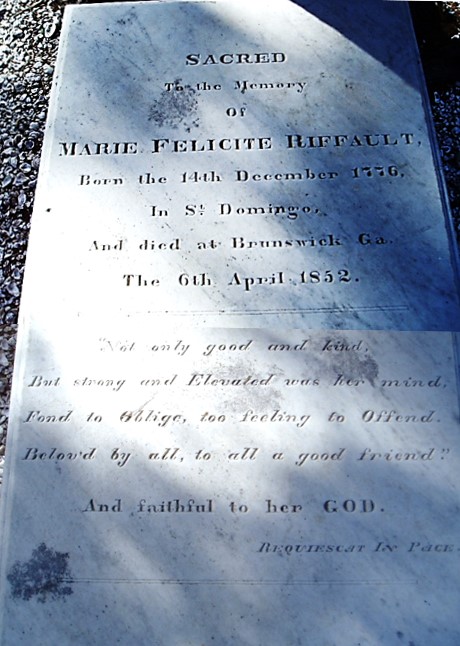 SACRED
To the Memory
Of
MARIE FELICITE RIFFAULT,
Born the 14th December 1776,
In St. Domingo,
And died at Brunswick Ga.
The 6th April 1852.
"Not only good and kind,
But strong and Elevated was her mind,
Fond to Oblige, too feeling to Offend.
Belov'd by all, to all a good friend"
And faithful to her GOD.
REQUIESCAT IN PACE.